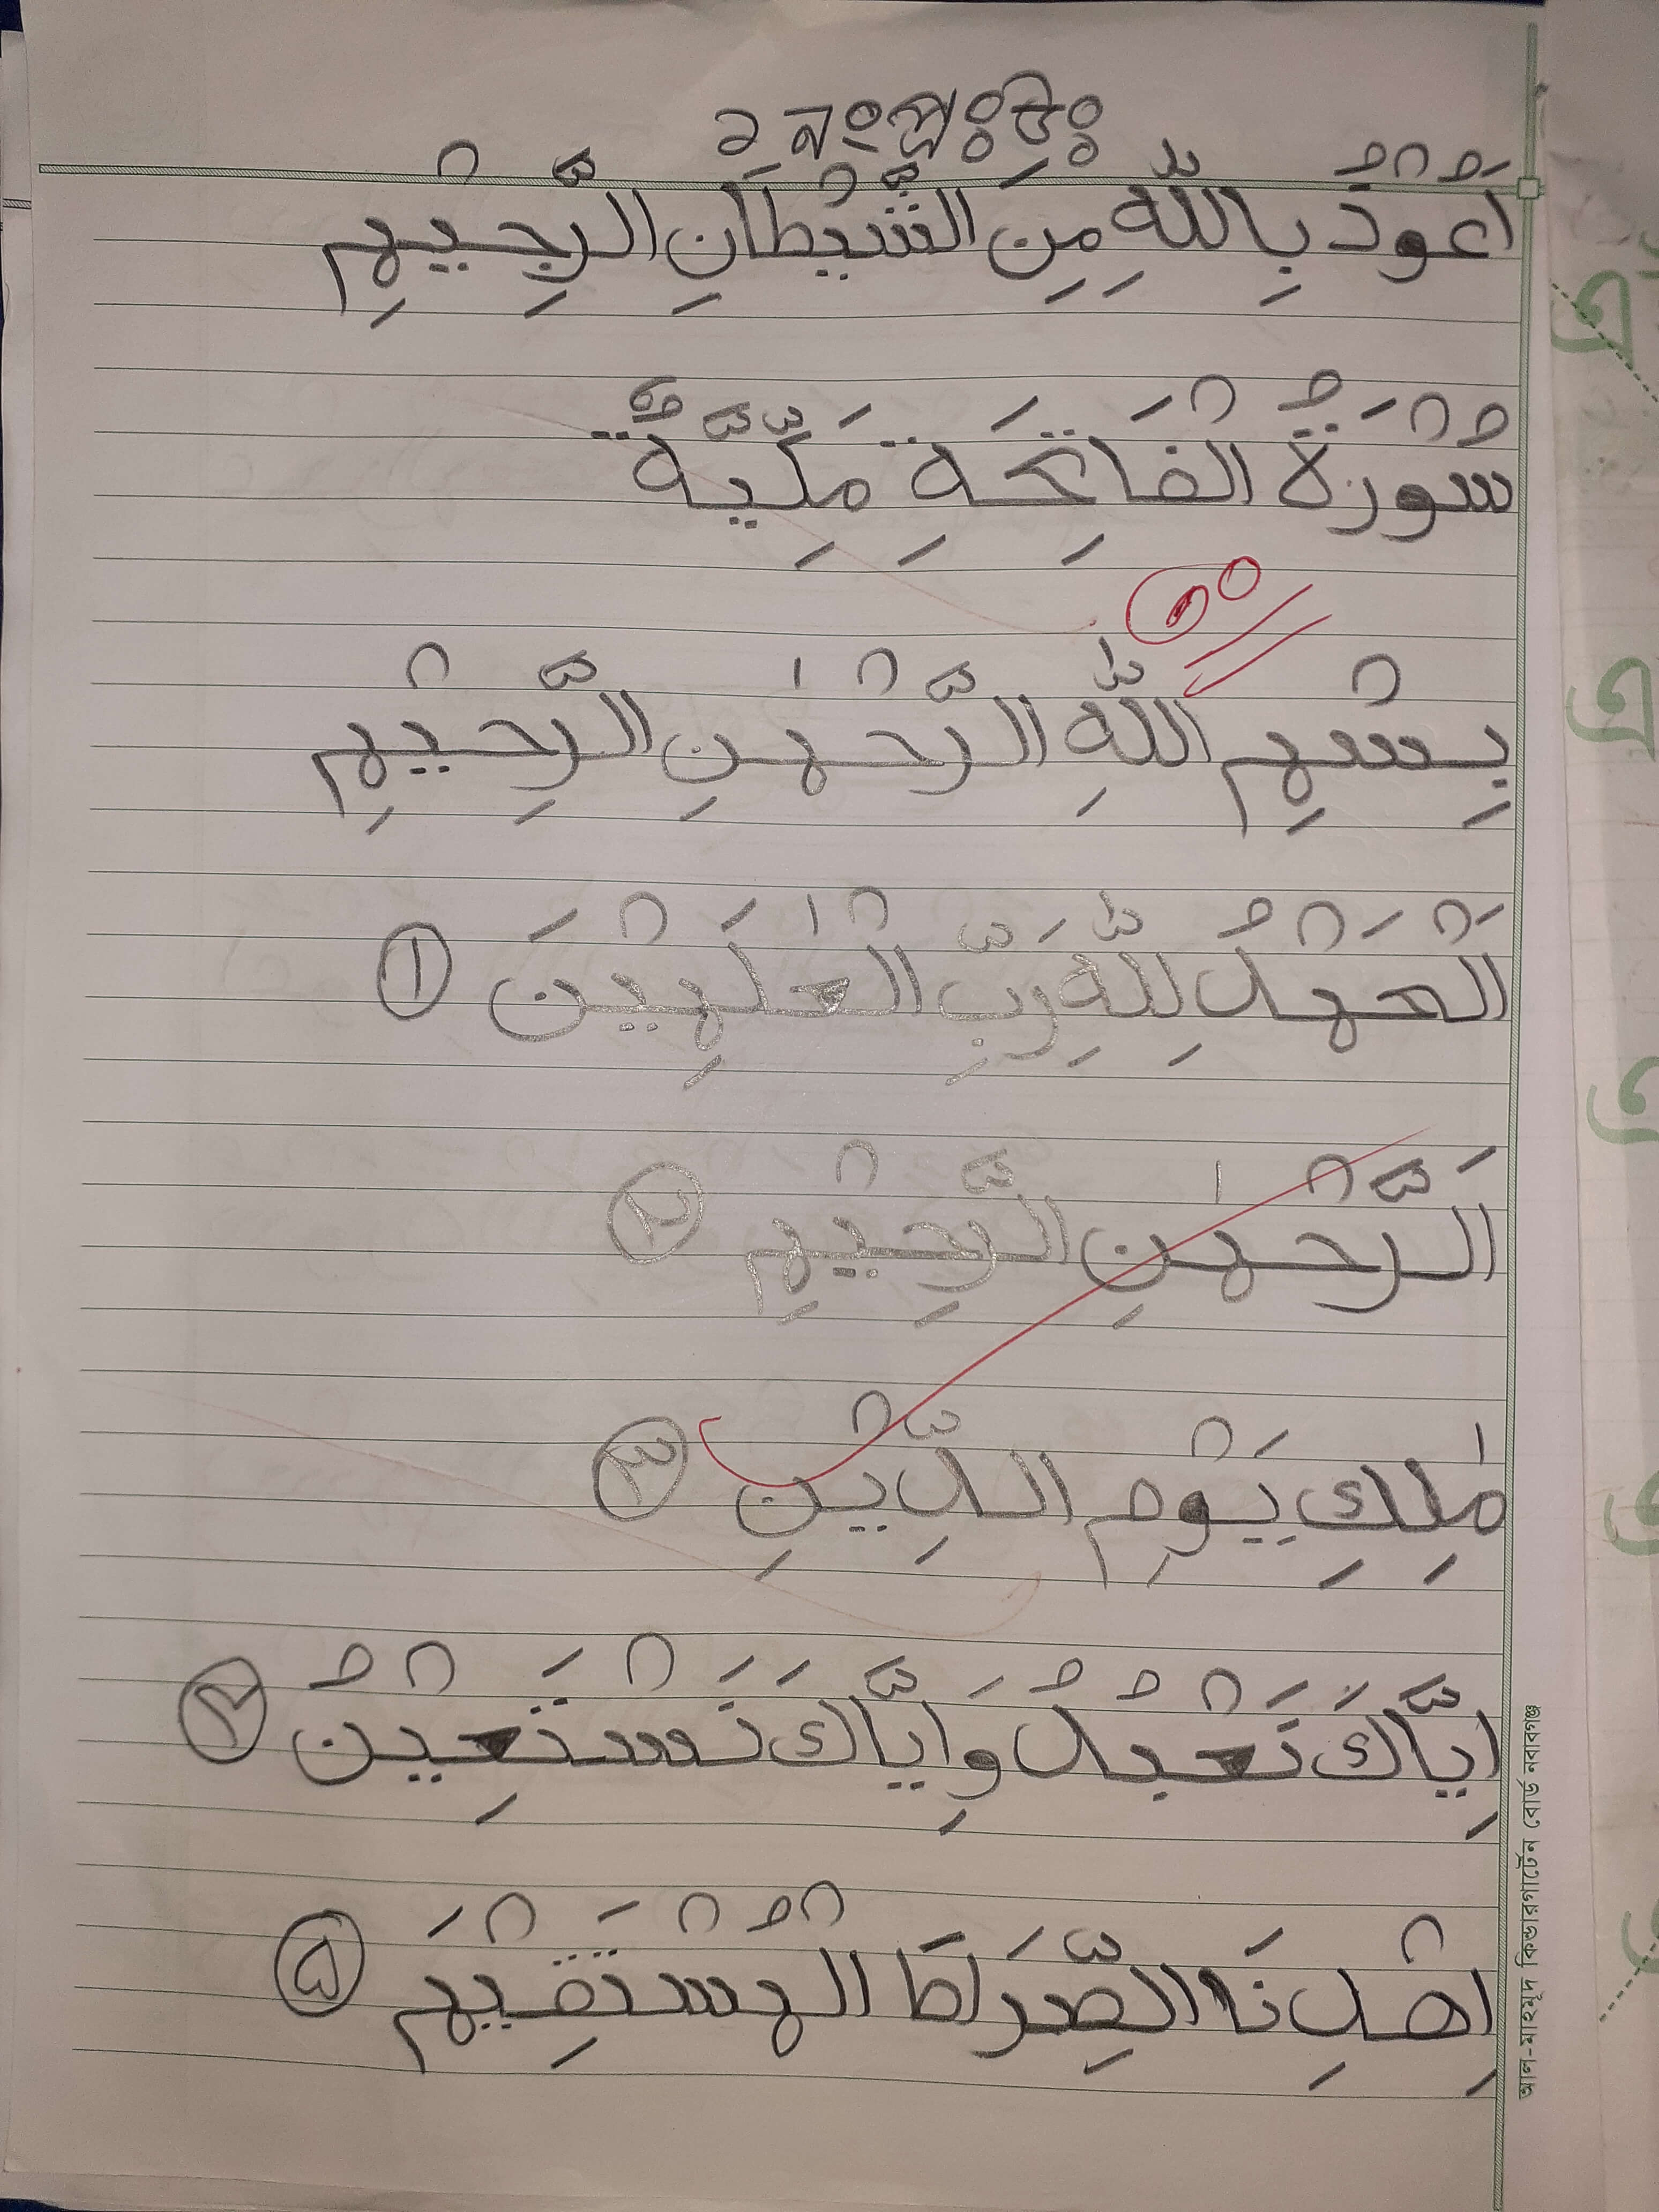 ১ নং প্রঃ উঃ
اَعُوْذُ بِاللّٰهِ مِنَ الشَّيْطَانِ الرَّجِيْمِ
سُوْرَةُ الْفَاتِحَةِ مَكِّيَّةٌ
১০
بِسْمِ اللّٰهِ الرَّحْمٰنِ الرَّحِيْمِ
اَلْحَمْدُ لِلّٰهِ رَبِّ الْعٰلَمِيْنَ ١
اَلرَّحْمٰنِ الرَّحِيْمِ ٢
مٰلِكِ يَوْمِ الدِّيْنِ ٣
اِيَّاكَ نَعْبُدُ وَاِيَّاكَ نَسْتَعِيْنُ ٤
اِهْدِنَا الصِّرَاطَ الْمُسْتَقِيْمَ ٥
আল-মাহমুদ কিন্ডারগার্টেন বোর্ড নবাবগঞ্জ